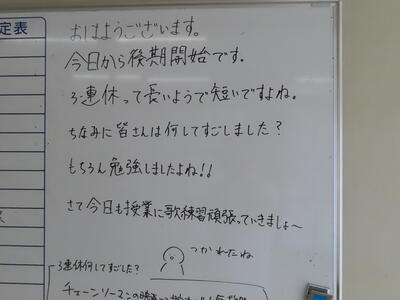 定表
おはようございます。
今日から後期開始です.
3連休って長いようで短いですよね。
ちなみに皆さんは何してすごしました?
もちろん勉強しましたよね!!
さて今日も授業に歌練習頑張っていきましょ〜
つかれたね
3連休何してすごした?
チェーンソーマンの映画